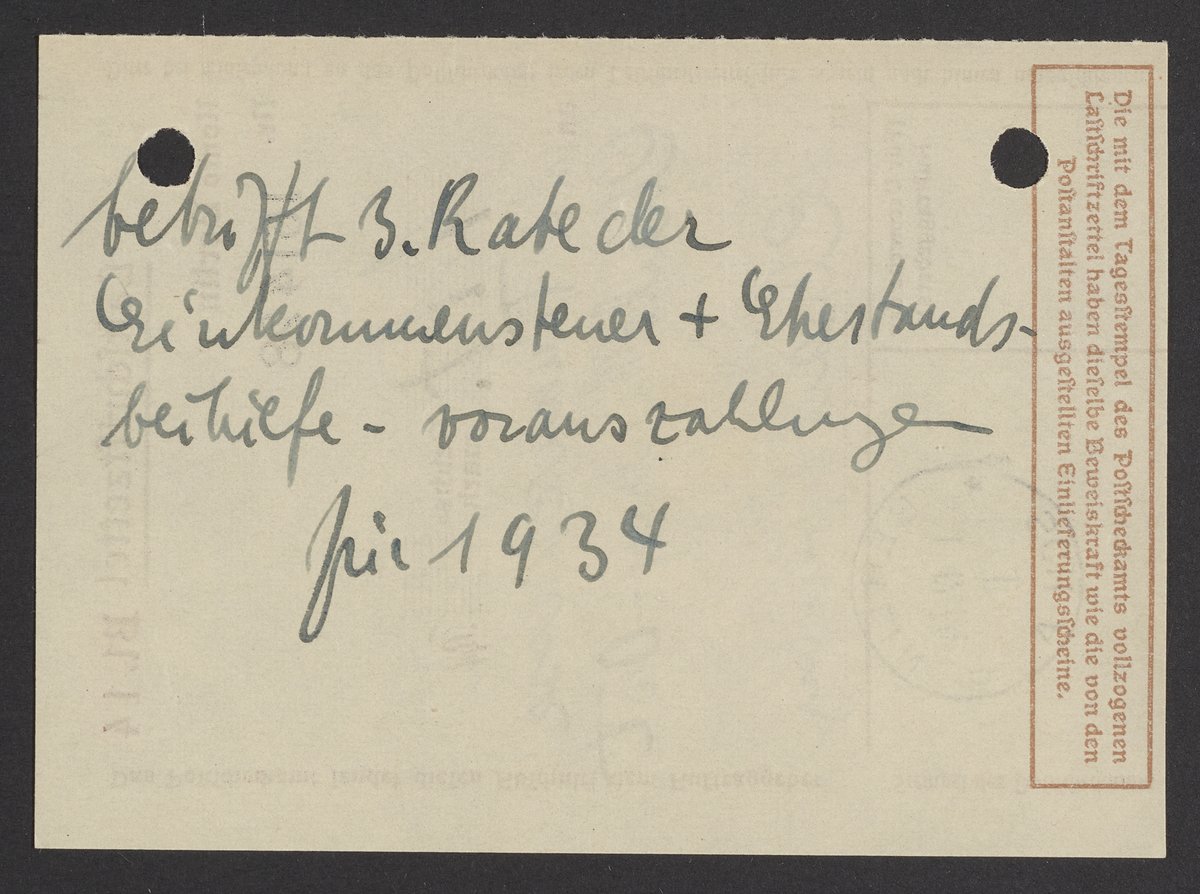 betrifft 3. Rate der
Einkommensteuer + Ehestands-
beihilfe - vorauszahlungen
für 1934
Die mit dem Tagesſtempel des Poſtſcheckamts vollzogenen
Laſtſchriftzettel haben dieſelbe Beweiskraft wie die von den
Poſtanſtalten ausgeſtellten Einlieferungsſcheine.